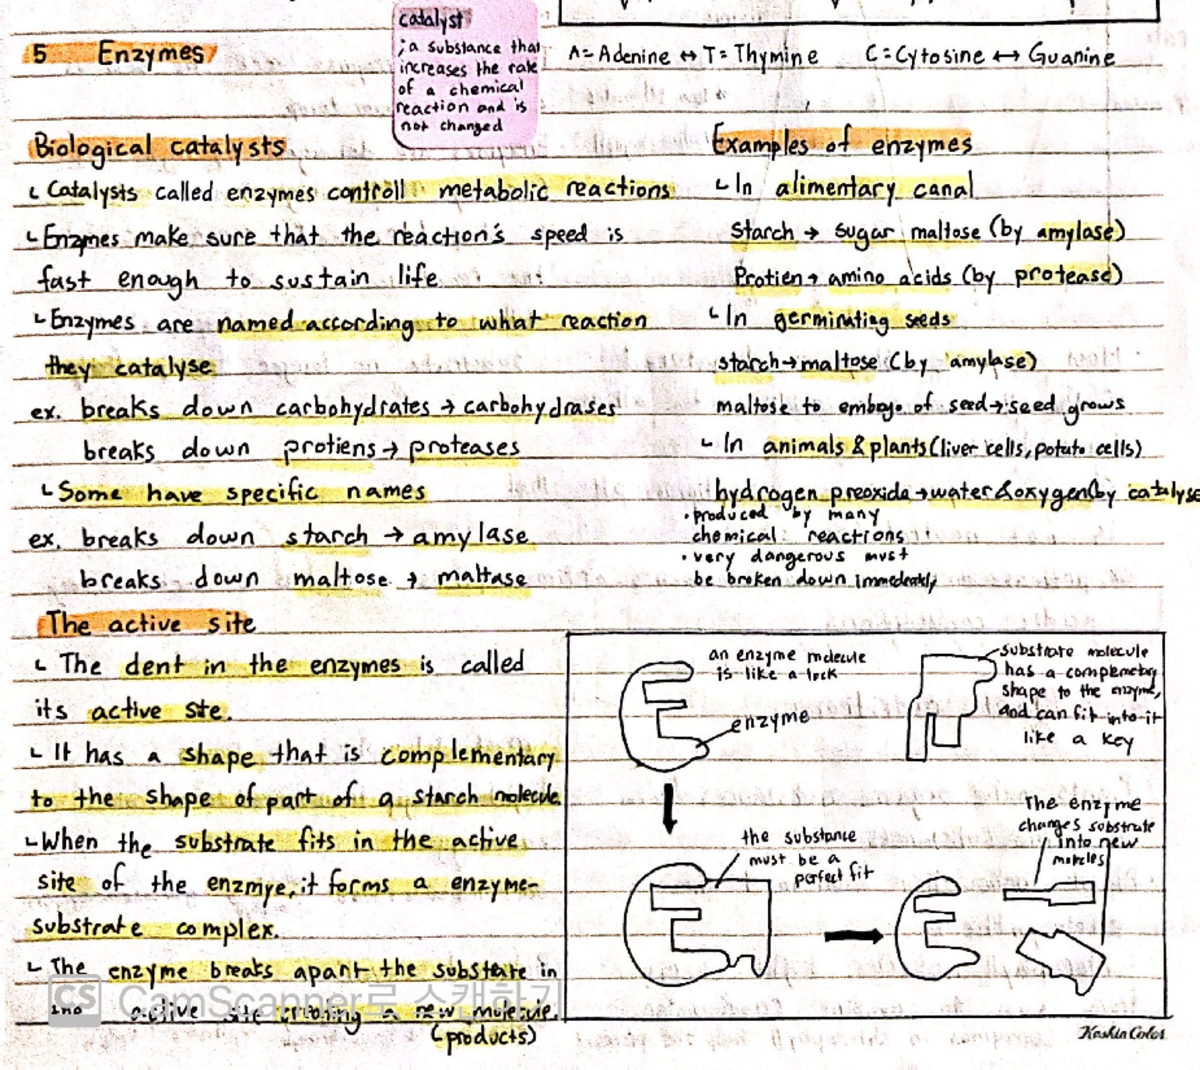 catalyst
; a substance that
increases the rate
of a chemical
reaction and is
not changed
A = Adenine ↔ T = Thymine C = Cytosine ↔ Guanine
5 Enzymes
Biological catalysts
Catalysts called enzymes controll metabolic reactions
Enzymes make sure that the reaction's speed is
fast enough to sustain life
Enzymes are named according to what reaction
they catalyse
ex. breaks down carbohydrates → carbohydrases
breaks down protiens → proteases
Some have specific names
ex. breaks down starch → amylase
breaks down maltose → maltase
The active site
The dent in the enzymes is called
its active ste.
It has a shape that is complementary
to the shape of part of a starch molecule
When the substrate fits in the active
site of the enzmye, it forms a enzyme-
substrate complex.
The enzyme breaks apart the substrate in
the active site creating a new molecule.
(products)
Examples of enzymes
In alimentary canal
Starch → sugar maltose (by amylase)
Protien → amino acids (by protease)
In germinating seeds
starch → maltose (by amylase)
maltose to embryo of seed → seed grows
In animals & plants (liver cells, potato cells)
hydrogen preoxide → water & oxygen (by catalyse
• produced by many
chemical reactions
• very dangerous must
be broken down
an enzyme molecule
is like a lock
enzyme
substrate molecule
has a complemetary
shape to the enzyme,
and can fit into it
like a key
the substance
must be a
perfect fit
The enzyme
changes substrate
into new
CS CamScanner로 스캔하기
Kashin Color